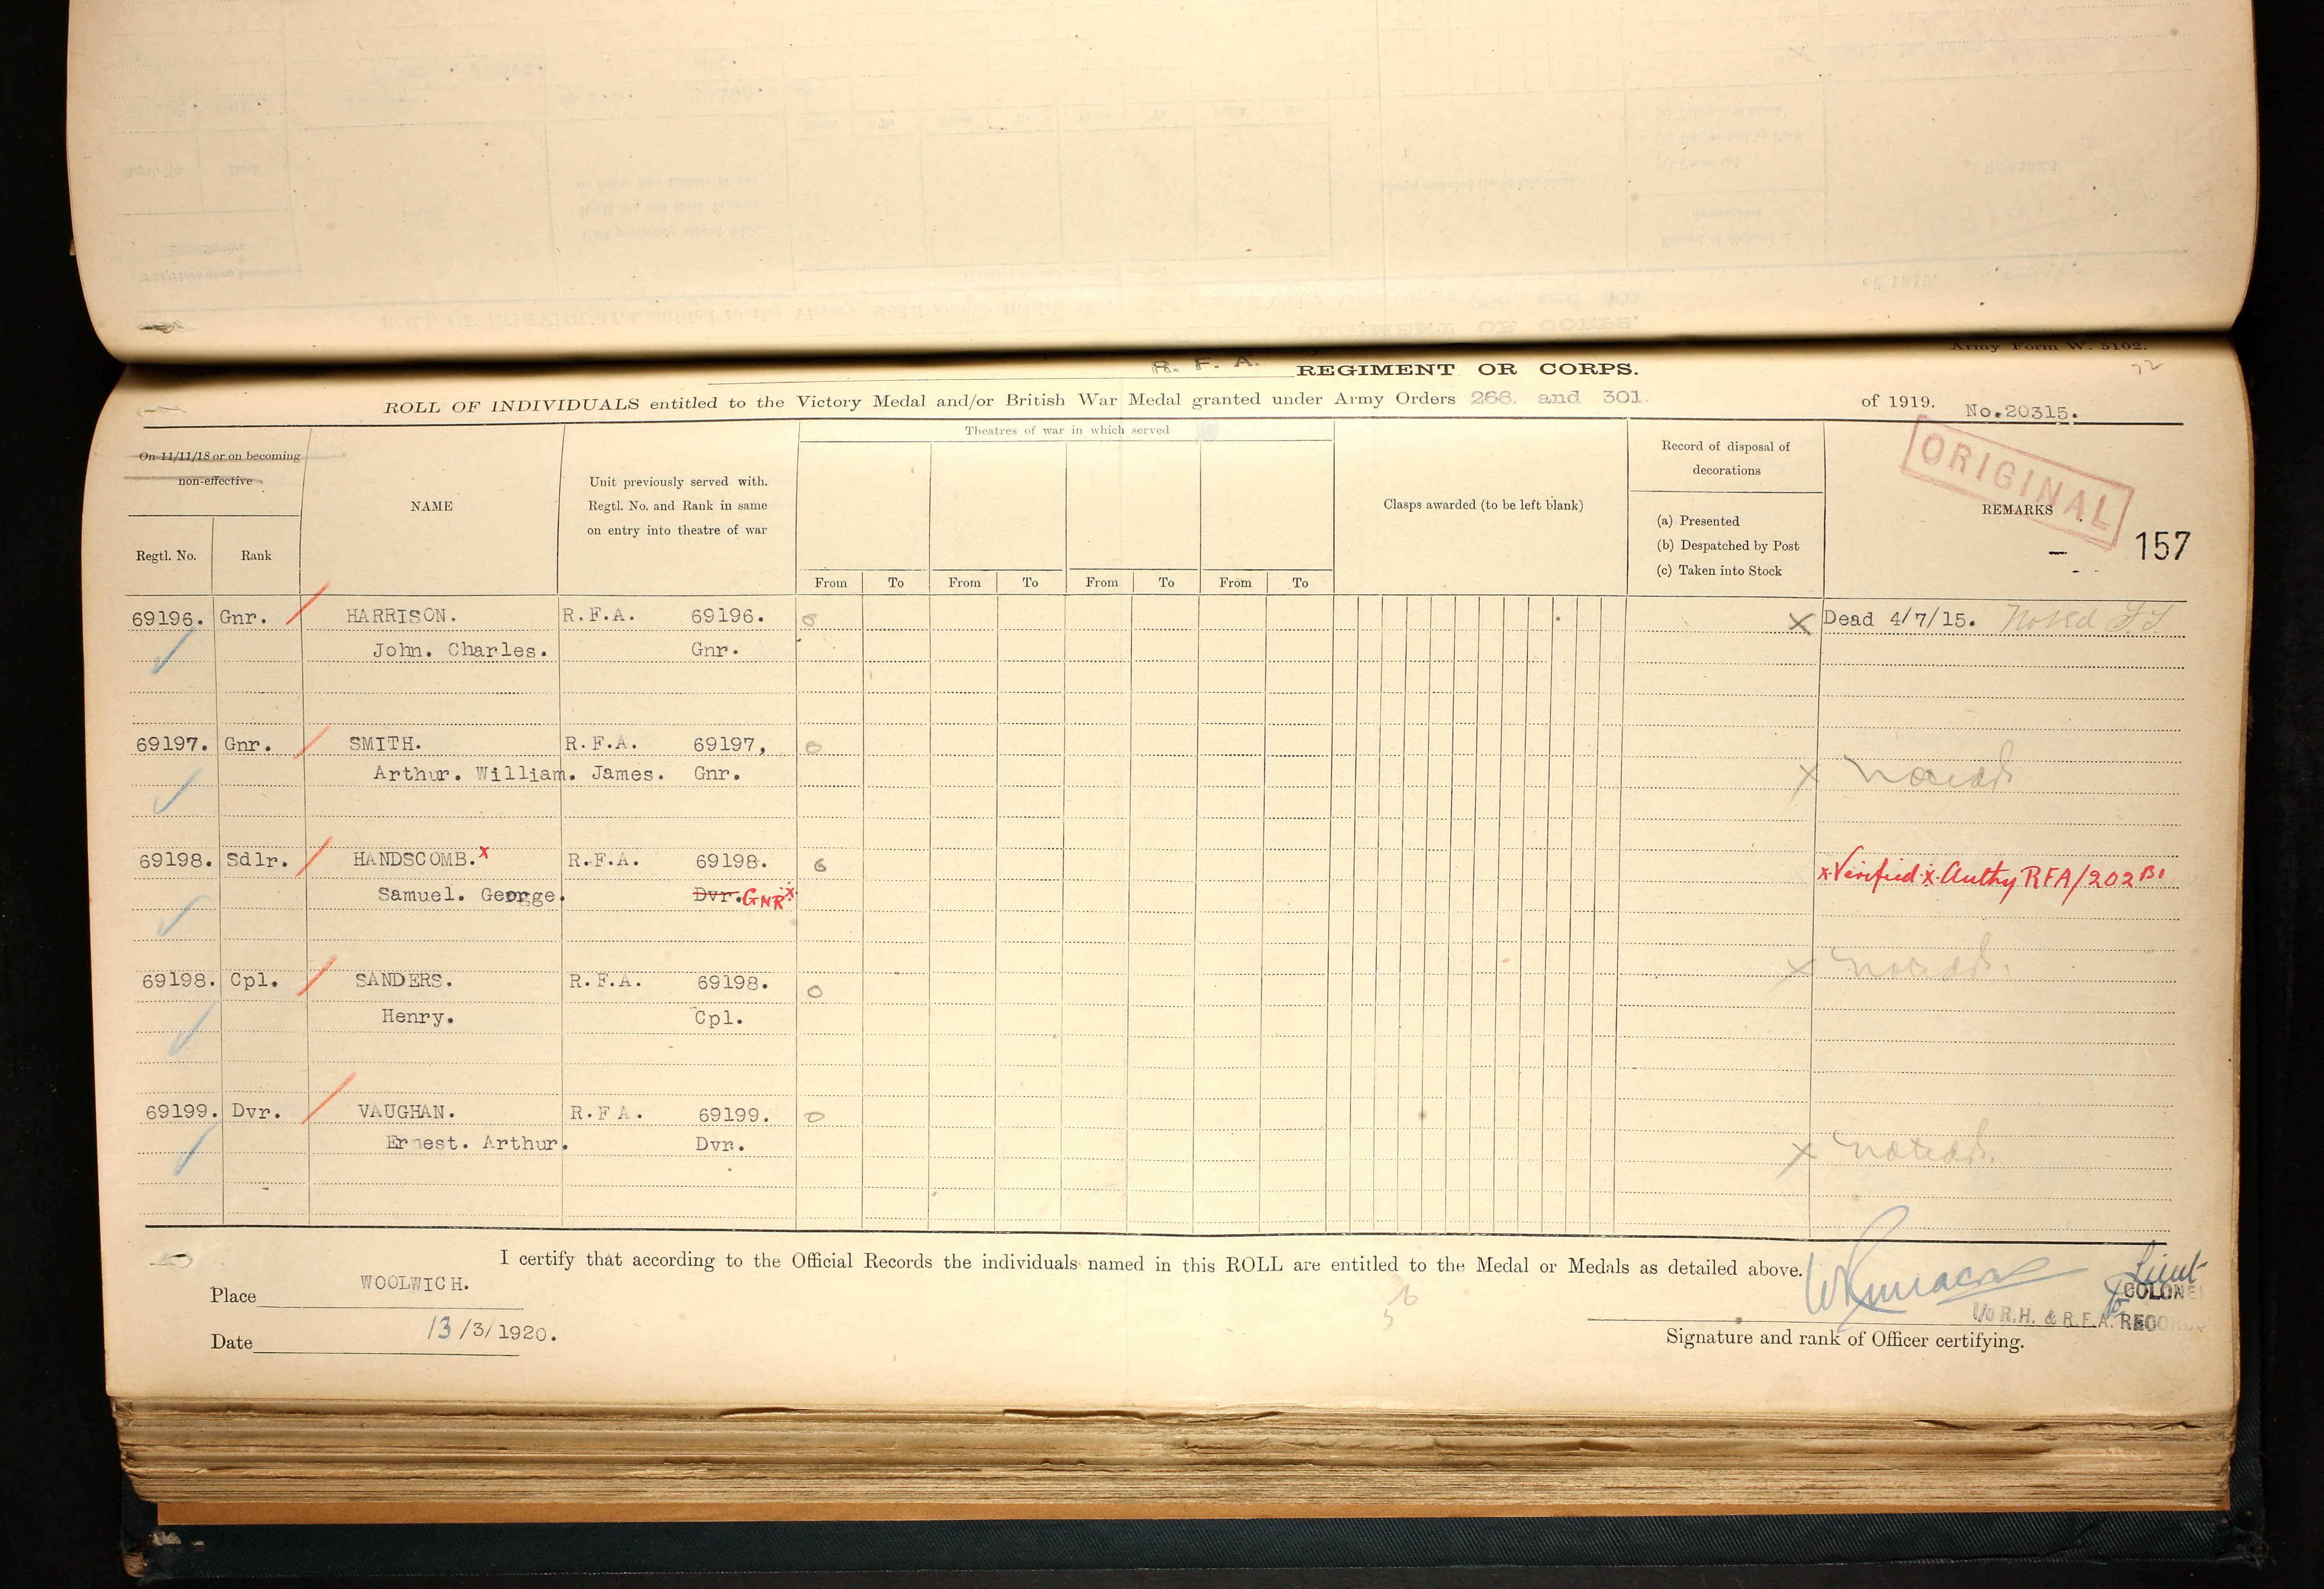 Army Form W. 5102.
R. F. A. REGIMENT OR CORPS.
ROLL OF INDIVIDUALS entitled to the Victory Medal and/or British War Medal granted under Army Orders 266. and 301. of 1919. No.20315.
ORIGINAL
157
On 11/11/18 or on becoming
non-effective
Regtl. No. Rank
NAME
Unit previously served with.
Regtl. No. and Rank in same
on entry into theatre of war
Theatres of war in which served
From To From To From To From To
Clasps awarded (to be left blank)
Record of disposal of
decorations
(a) Presented
(b) Despatched by Post
(c) Taken into Stock
REMARKS
69196. Gnr. HARRISON. R.F.A. 69196. X Dead 4/7/15. Noted
John. Charles. Gnr.
69197. Gnr. SMITH. R.F.A. 69197,
Arthur. William. James. Gnr. X Noted
69198. Sdlr. HANDSCOMB.x R.F.A. 69198. 6 x Verified x Authy RFA/202 B1
Samuel. George. Dvr. GNR x
X Noted.
69198. Cpl. SANDERS. R.F.A. 69198. 0
Henry. Cpl.
69199. Dvr. VAUGHAN. R.F A. 69199. 0
Ernest. Arthur. Dvr. X Noted.
I certify that according to the Official Records the individuals named in this ROLL are entitled to the Medal or Medals as detailed above.
Place WOOLWICH.
Date 13/3/1920.
Lieut
for COLONEL
I/o R.H. & R.F.A. RECORDS
Signature and rank of Officer certifying.